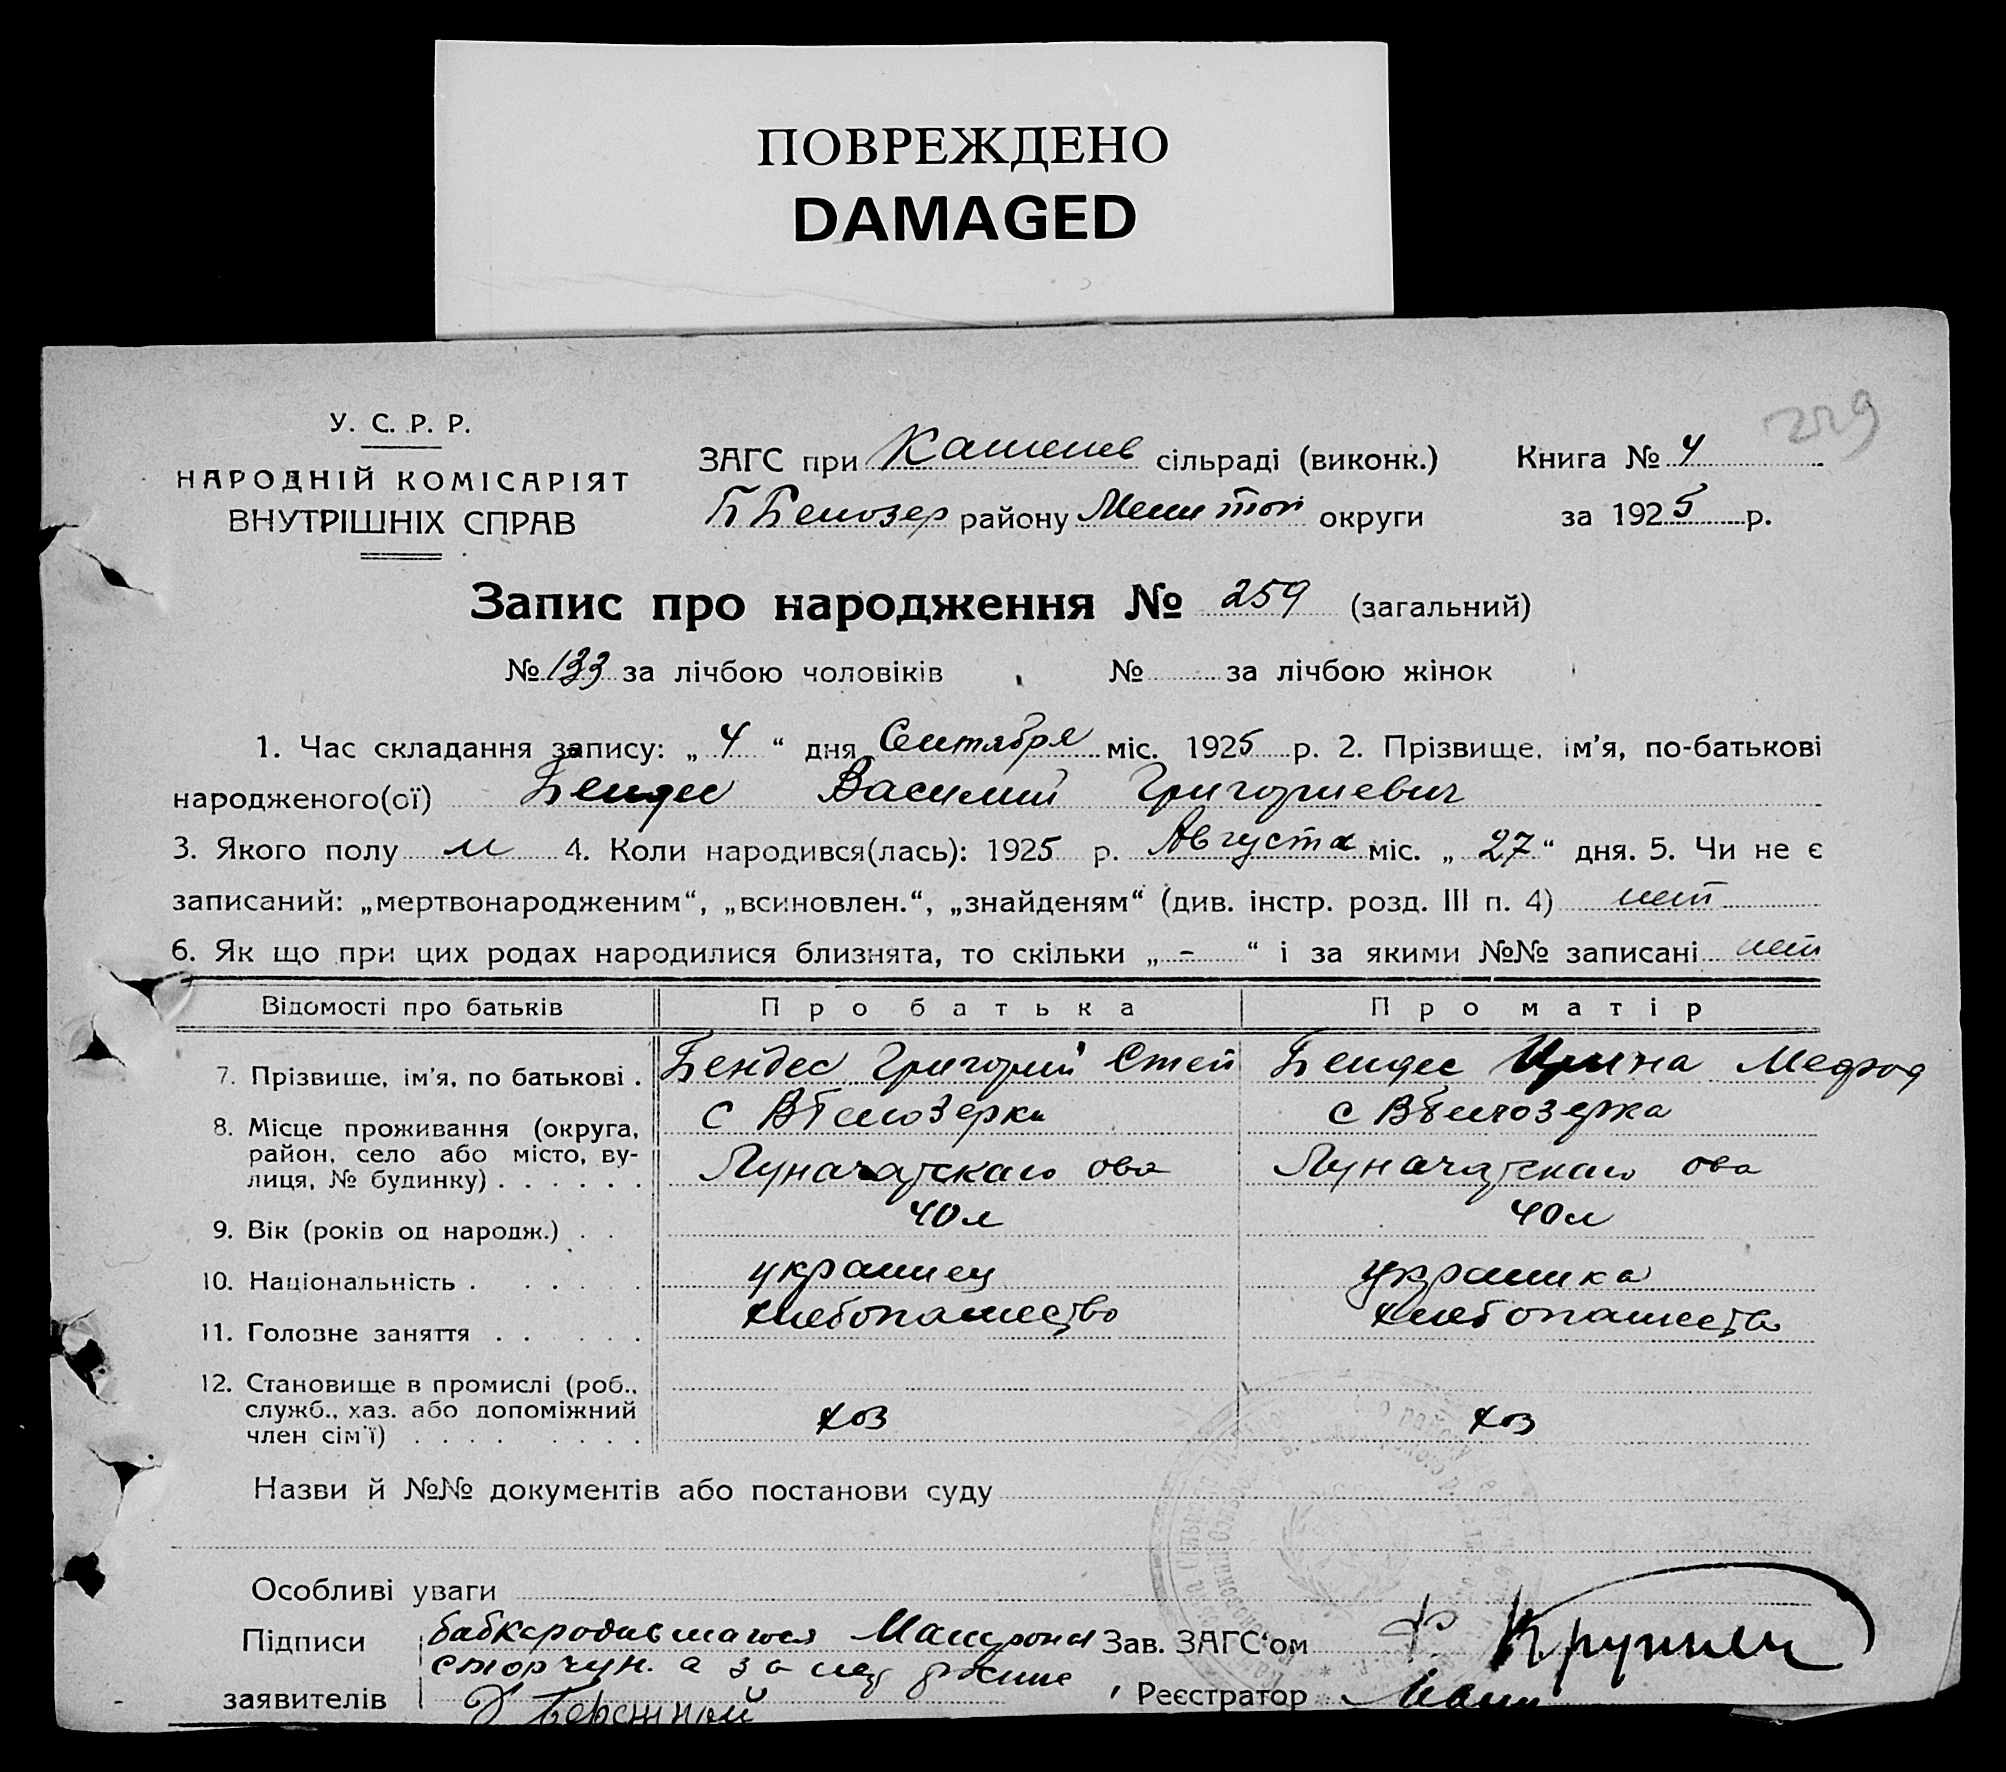 ПОВРЕЖДЕНО
DAMAGED
229
У. С. Р. Р.
НАРОДНІЙ КОМІСАРІЯТ
ВНУТРІШНІХ СПРАВ
ЗАГС при сільраді (виконк.) Книга № 4
Б Белозер району Мелитоп округи за 1925 р.
Запис про народження № 259 (загальний)
№ 133 за лічбою чоловіків № за лічбою жінок
1. Час складання запису: „ 4 “ дня Сентября міс. 1925 р. 2. Прізвище, ім’я, по-батькові
народженого(ої) Бендес Василий Григориевич
3. Якого полу м 4. Коли народився(лась): 1925 р. Августа міс. „ 27 “ дня. 5. Чи не є
записаний: „мертвонародженим“, „всиновлен.“, „знайденям“ (див. інстр. розд. III п. 4) нет
6. Як що при цих родах народилися близнята, то скільки „ - “ і за якими №№ записані нет
Відомості про батьків Про батька Про матір
7. Прізвище, ім’я, по батькові . Бендес Григорий Бендес Ирина
8. Місце проживання (округа, район, село або місто, вулиця, № будинку) . . . . . . с ВБелозерка с ВБелозерка
Луначарскаго ова Луначарскаго ова
9. Вік (років од народж.) . . 40 л 40 л
10. Національність . . . . . украинец украинка
11. Головне заняття . . . . хлебопашество хлебопашество
12. Становище в промислі (роб., служб., хаз. або допоміжний член сім’ї) . . . . . . . . хоз хоз
Назви й №№ документів або постанови суду
Особливі уваги
Підписи Зав. ЗАГС‘ом
заявителів Реєстратор